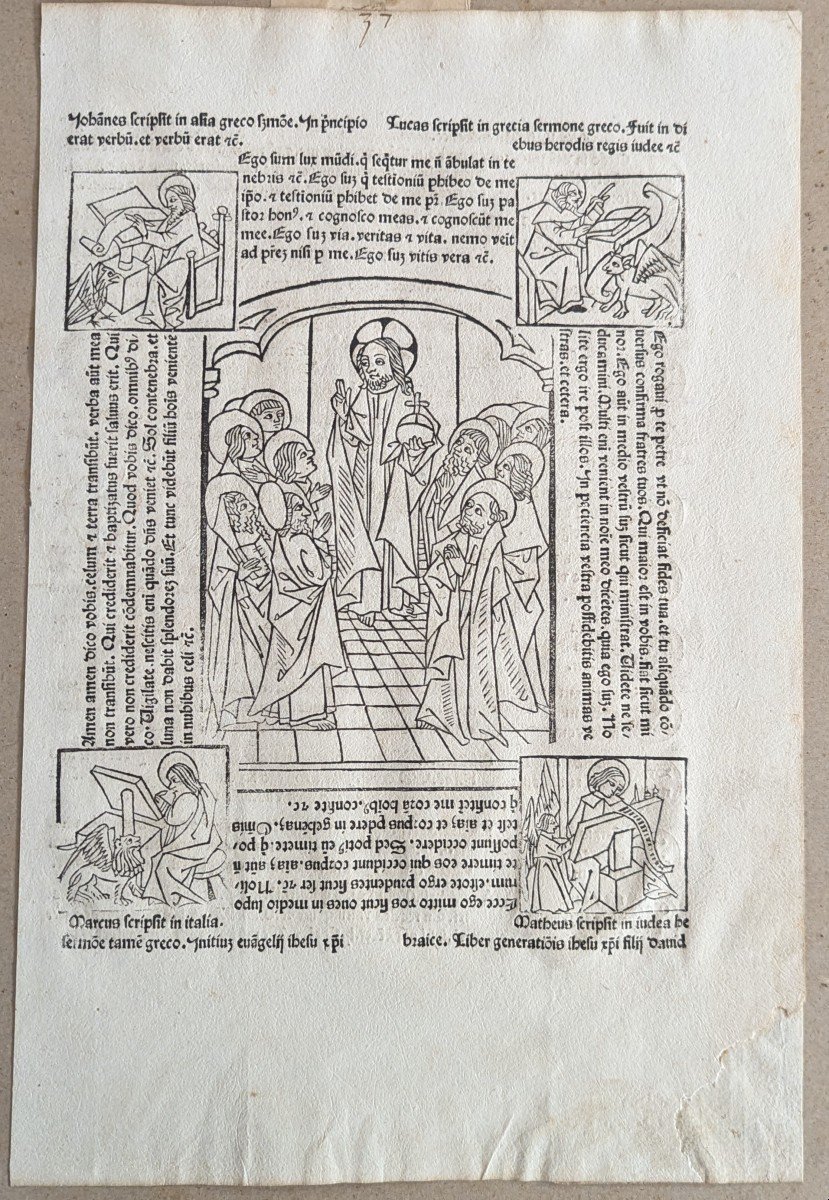 37
Johānes scripsit in asia greco s̄mōe. In p̄ncipio
erat verbū. et verbū erat ⁊c̄.
Lucas scripsit in grecia sermone greco. Fuit in di
ebus herodis regis iudee ⁊c̄
Ego sum lux mūdi. q̄ seq̄tur me n̄ ābulat in te
nebris ⁊c̄. Ego suꝫ q̄ testioniū phibeo de me
ip̄o. ⁊ testioniū phibet de me pr̄. Ego suꝫ pa
stor bonꝰ. ⁊ cognosco meas. ⁊ cognoscūt me
mee. Ego suꝫ via. veritas ⁊ vita. nemo veīt
ad p̄reꝫ nisi p me. Ego suꝫ vitis vera ⁊c̄.
Amen amen dico vobis. celum ⁊ terra transibūt. verba aūt mea
non transibūt. Qui crediderit ⁊ baptizatus fuerit saluus erit. Qui
vero non crediderit cōdemnabitur. Quod vobis dico. omnibꝰ di⸗
co. Uigilate. nescitis eni quādo dn̄s veniet ⁊c̄. Sol contenebra. et
luna non dabit splendoreꝫ suū. Et tunc videbūt filiū hoīs venientē
in nubibus celi ⁊c̄.
Ego rogaui p̄ te petre vt nō deficiat fides tua. et tu aliquādo cō⸗
uersus confirma fratres tuos. Qui maior est in vobis. fiat sicut mi
nor. Ego aūt in medio vestrū suꝫ sicut qui ministrat. Uidete ne se⸗
ducamini. Multi eni venient in noīe meo dicētes. quia ego suꝫ. No
lite ergo ire post illos. In paciencia vestra possidebitis animas ve
stras. et cetera.
Ecce ego mitto vos sicut oues in medio lupo
rum. estote ergo prudentes sicut ser ⁊c̄. Noli⸗
te timere eos qui occidunt corpus. aīaꝫ aūt n̄
possunt occidere. Sed potiꝰ eū timete. q̄ po⸗
test et aīaꝫ et corpus pdere in gehēnaꝫ. Oīnis
q̄ confitet me corā hoībꝰ. confite ⁊c.
Marcus scripsit in italia.
sermōe tamē greco. Initiuꝫ euāgelij ihesu xp̄i
Matheus scripsit in iudea he
braice. Liber generatiōis ihesu xp̄i filij dauid